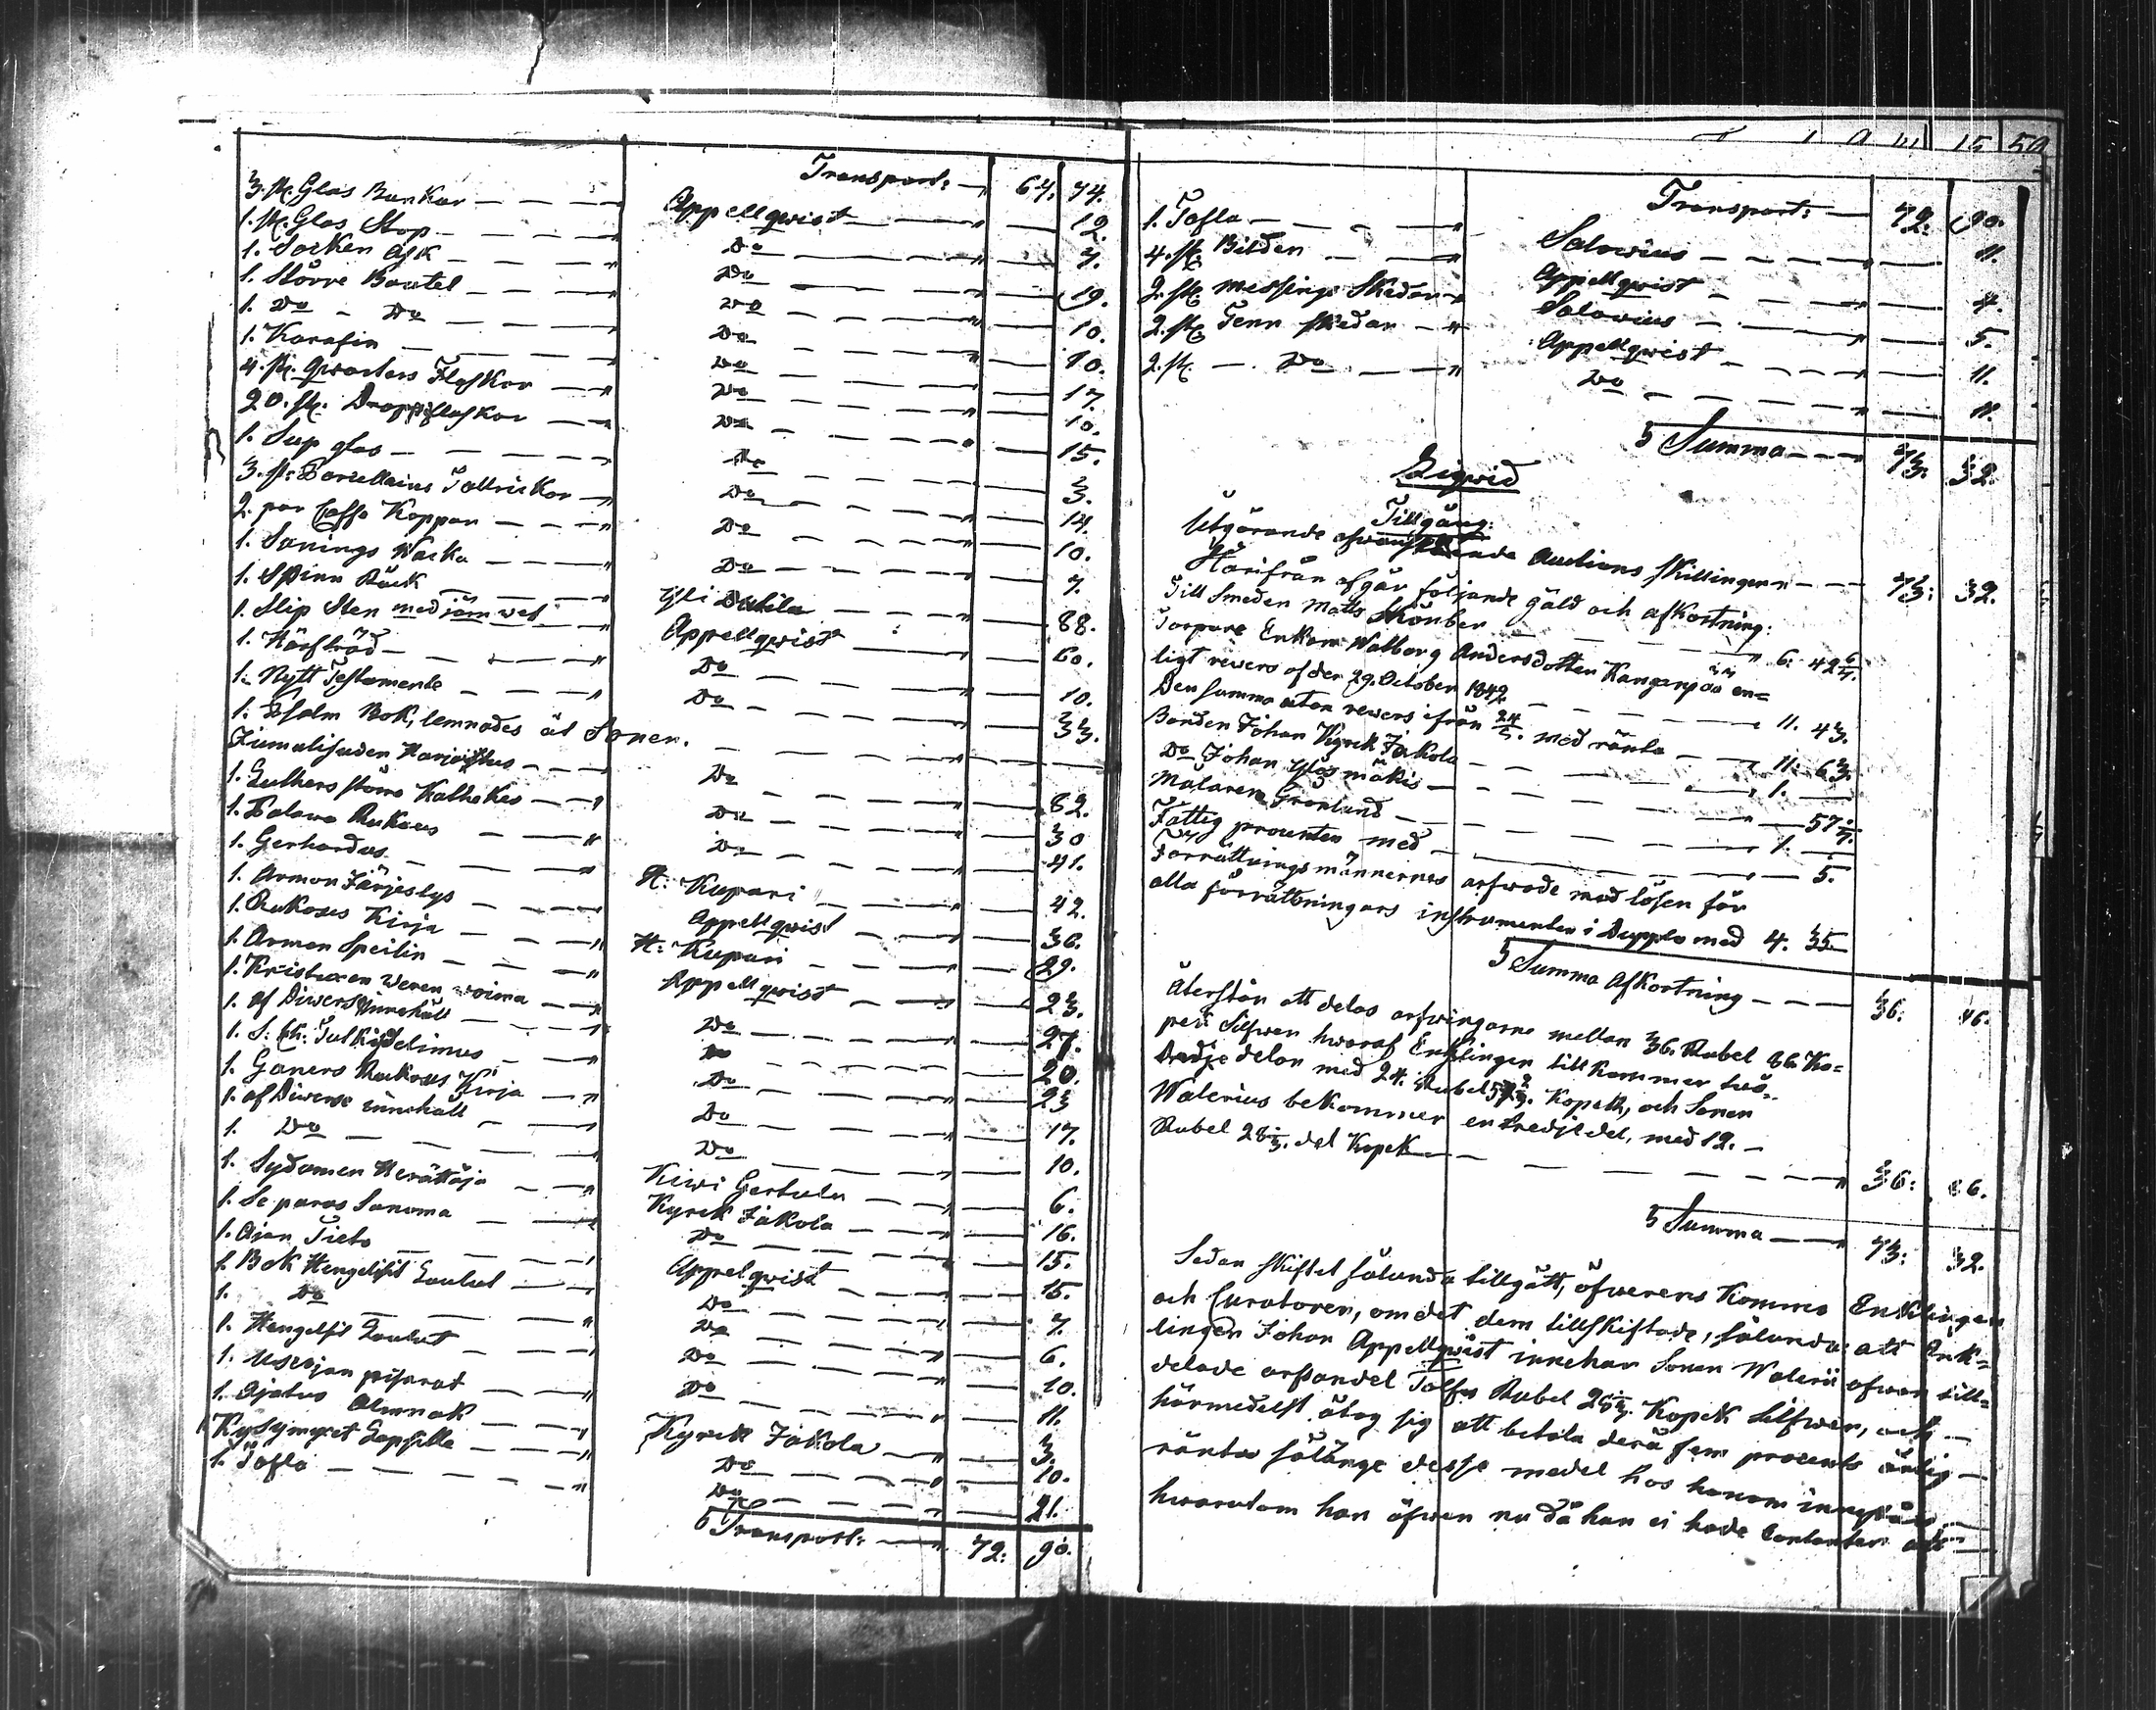 Transport: 64. 74.
3. st. Glas Burkar Appellqwist 12.
1. st. Glas Stop Do 7.
1. Socken Ask Do 19.
1. Större Boutel Do 10.
1. Do Do Do 10.
1. Karafin Do 17.
4. st. qwarters Flaskor Do 10.
20. st. Droppflaskor Do 15.
1. Sup glas Do 3.
3. st. Porcellains Tallrickor Do 14.
2. par Caffe Koppar Do 10.
1. Sånings Wacka Do 7.
1. Spinn Råck Yli 88.
1. Slip Sten med järn wef Appellqwist 60.
1. Härfträd Do 10.
1. Nytt Testamente Do 33.
1. Psalm Bok, lemnades åt Sonen.
Jumalisuden Harjoitus Do 82.
1. Luthers större Kathekes Do 30
1. Palawa Rukous Do 41.
1. Gerhardus H: Kupari 42.
1. Armon Järjestys Appellqwist 36.
1. Rukous Kirja H: Kupari 29.
1. Armon Speilin Appellqwist 23.
1. Kristuxen Weren woima Do 27.
1. af Diwerse innehåll Do 20.
1. S: Do 23
1. Ganers Rukous Kirja Do 17.
1. af Diwerse innehåll Do 10.
1. Do Kiwi Gertulu 6.
1. Sydämen Herättäjä Kyrck Jakola 16.
1. Se paras Sanoma Do 15.
1. Ajan Tieto Appelqwist 15.
1. Bok Hengelisit Laulut Do 7.
1. Do Do 6.
1. Hengelsit Laulut Do 10.
1. pisarat Do 11.
1. Ajatus Almnak Kyrck Jakola 3.
1 Kysymyxet Lapsille Do 10.
1. Tafla Do 21.
Transport: 72: 90.
15 50
Transport: 72. 90.
1. Tafla Salowius 11.
4. st. Bilder Appellqwist 4.
2. st. messings Skedar Salowius 5.
2. st. Tenn skedar Appellqwist 11.
2. st. Do Do 11.
Summa 73. 32.
Liqwid
Tillgång:
Utgörande ofwanstående Auctions skillingen 73: 32.
Härifrån afgår följande gäld och afkortning:
Till Smeden Matts 6: 42 6/7.
Torpare Enkan Walborg Andersdotter Kanganpää en=
ligt revers af den 29. October 1849 11. 43.
Den samma utan revers ifrån 24/5. med ränta 11. 63.
Bonden Johan Kyrck Jakola 1.
Do Johan mäkis 57 1/7.
Målaren Grönlund 1.
Fattig procenten med 5.
Förrättningsmännernes arfwode med lösen för
alla förrättningars instrumenter i Dupplo med 4. 35
Summa Afkortning 36. 46.
Återstår att delas arfwingarne mellan 36. Rubel 86 Ko=
pek Silfwer hwaraf Enklingen tillkommer två=
tredje delar med 24. Rubel 57 1/3. Kopek, och Sonen
Walerius bekommer en tredjedel, med 12.
Rubel 28 2/3. del Kopek 36: 86.
Summa 73: 32.
Sedan skiftet sålunda tillgått, öfwerens kommo Enklingen
och Curatoren, om det dem tillskiftade, sålunda: att Enk=
lingen Johan Appellqwist innehar Sonen Walerii ofwan till=
delade arfsandel Tolf Rubel 28 2/3. Kopek Silfwer, och
härmedelst åtog sig att betala derå fem procents årlig
ränta sålänge desse medel hos honom innestå
hwarutom han äfwen nu då han ei hade Contanter att